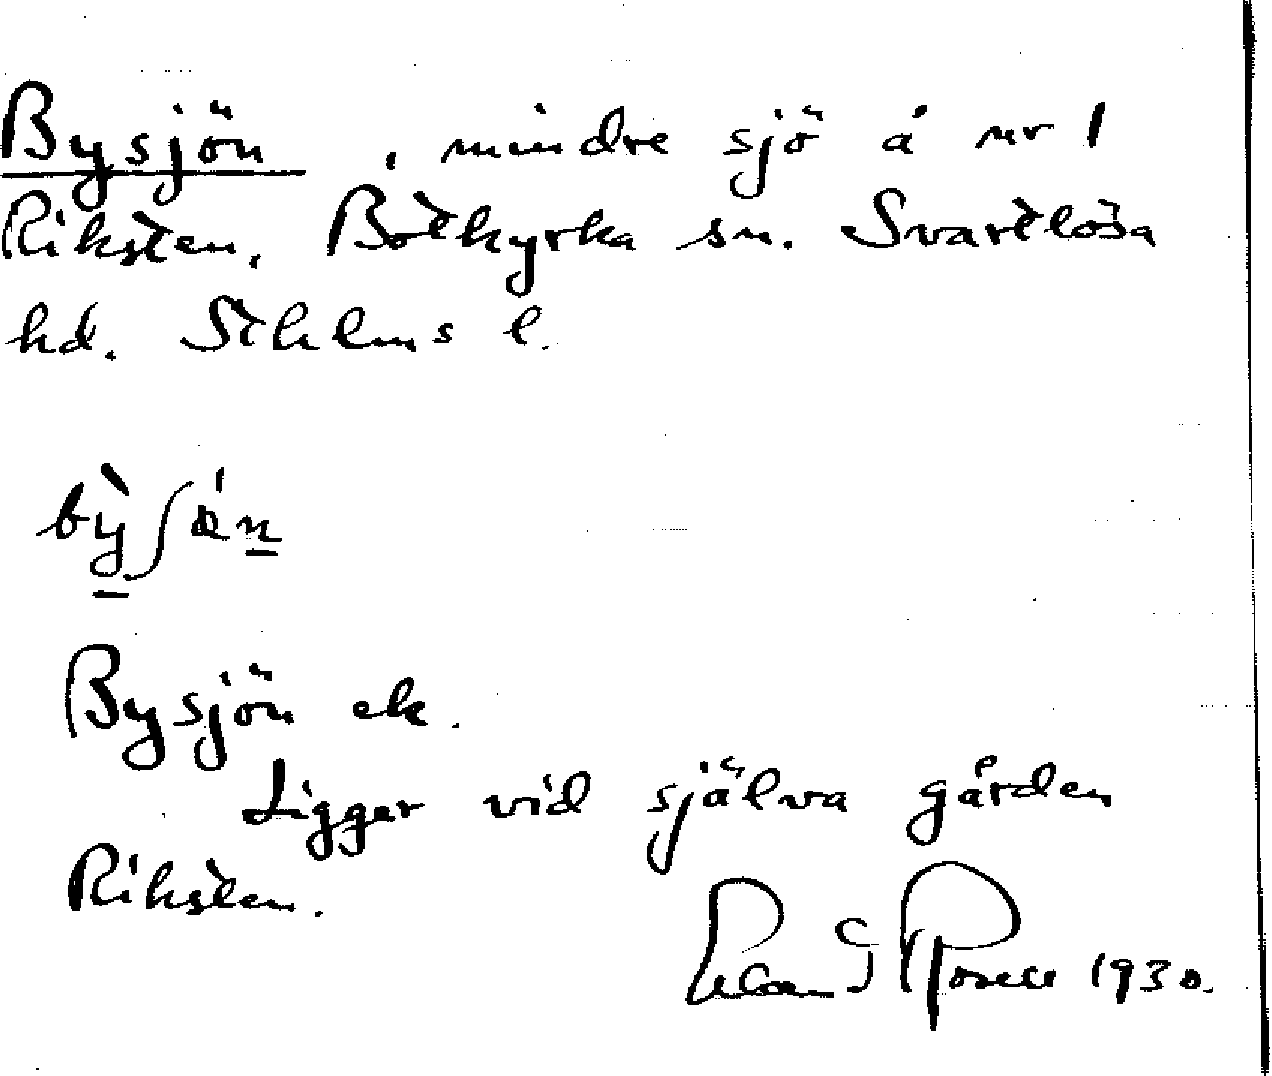 Bysjön, mindre sjö å nr 1
Riksten, Botkyrka sn. Svartlösa
hd. Sthlms l.
Bysjön ek.
Ligger vid själva gården
Riksten.
1930.